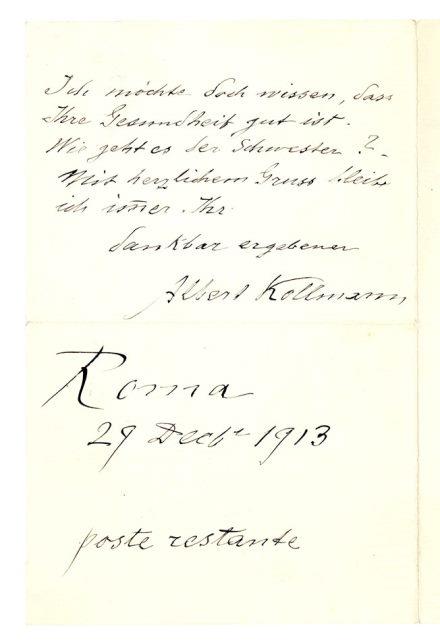 Ich möchte doch wissen, dass
Ihre Gesundheit gut ist.
Wie geht es der Schwester?
Mit herzlichem Gruss bleibe
ich im̄er Ihr
dankbar ergebener
Albert Kollmann
Roma
29 Decbr 1913
poste restante